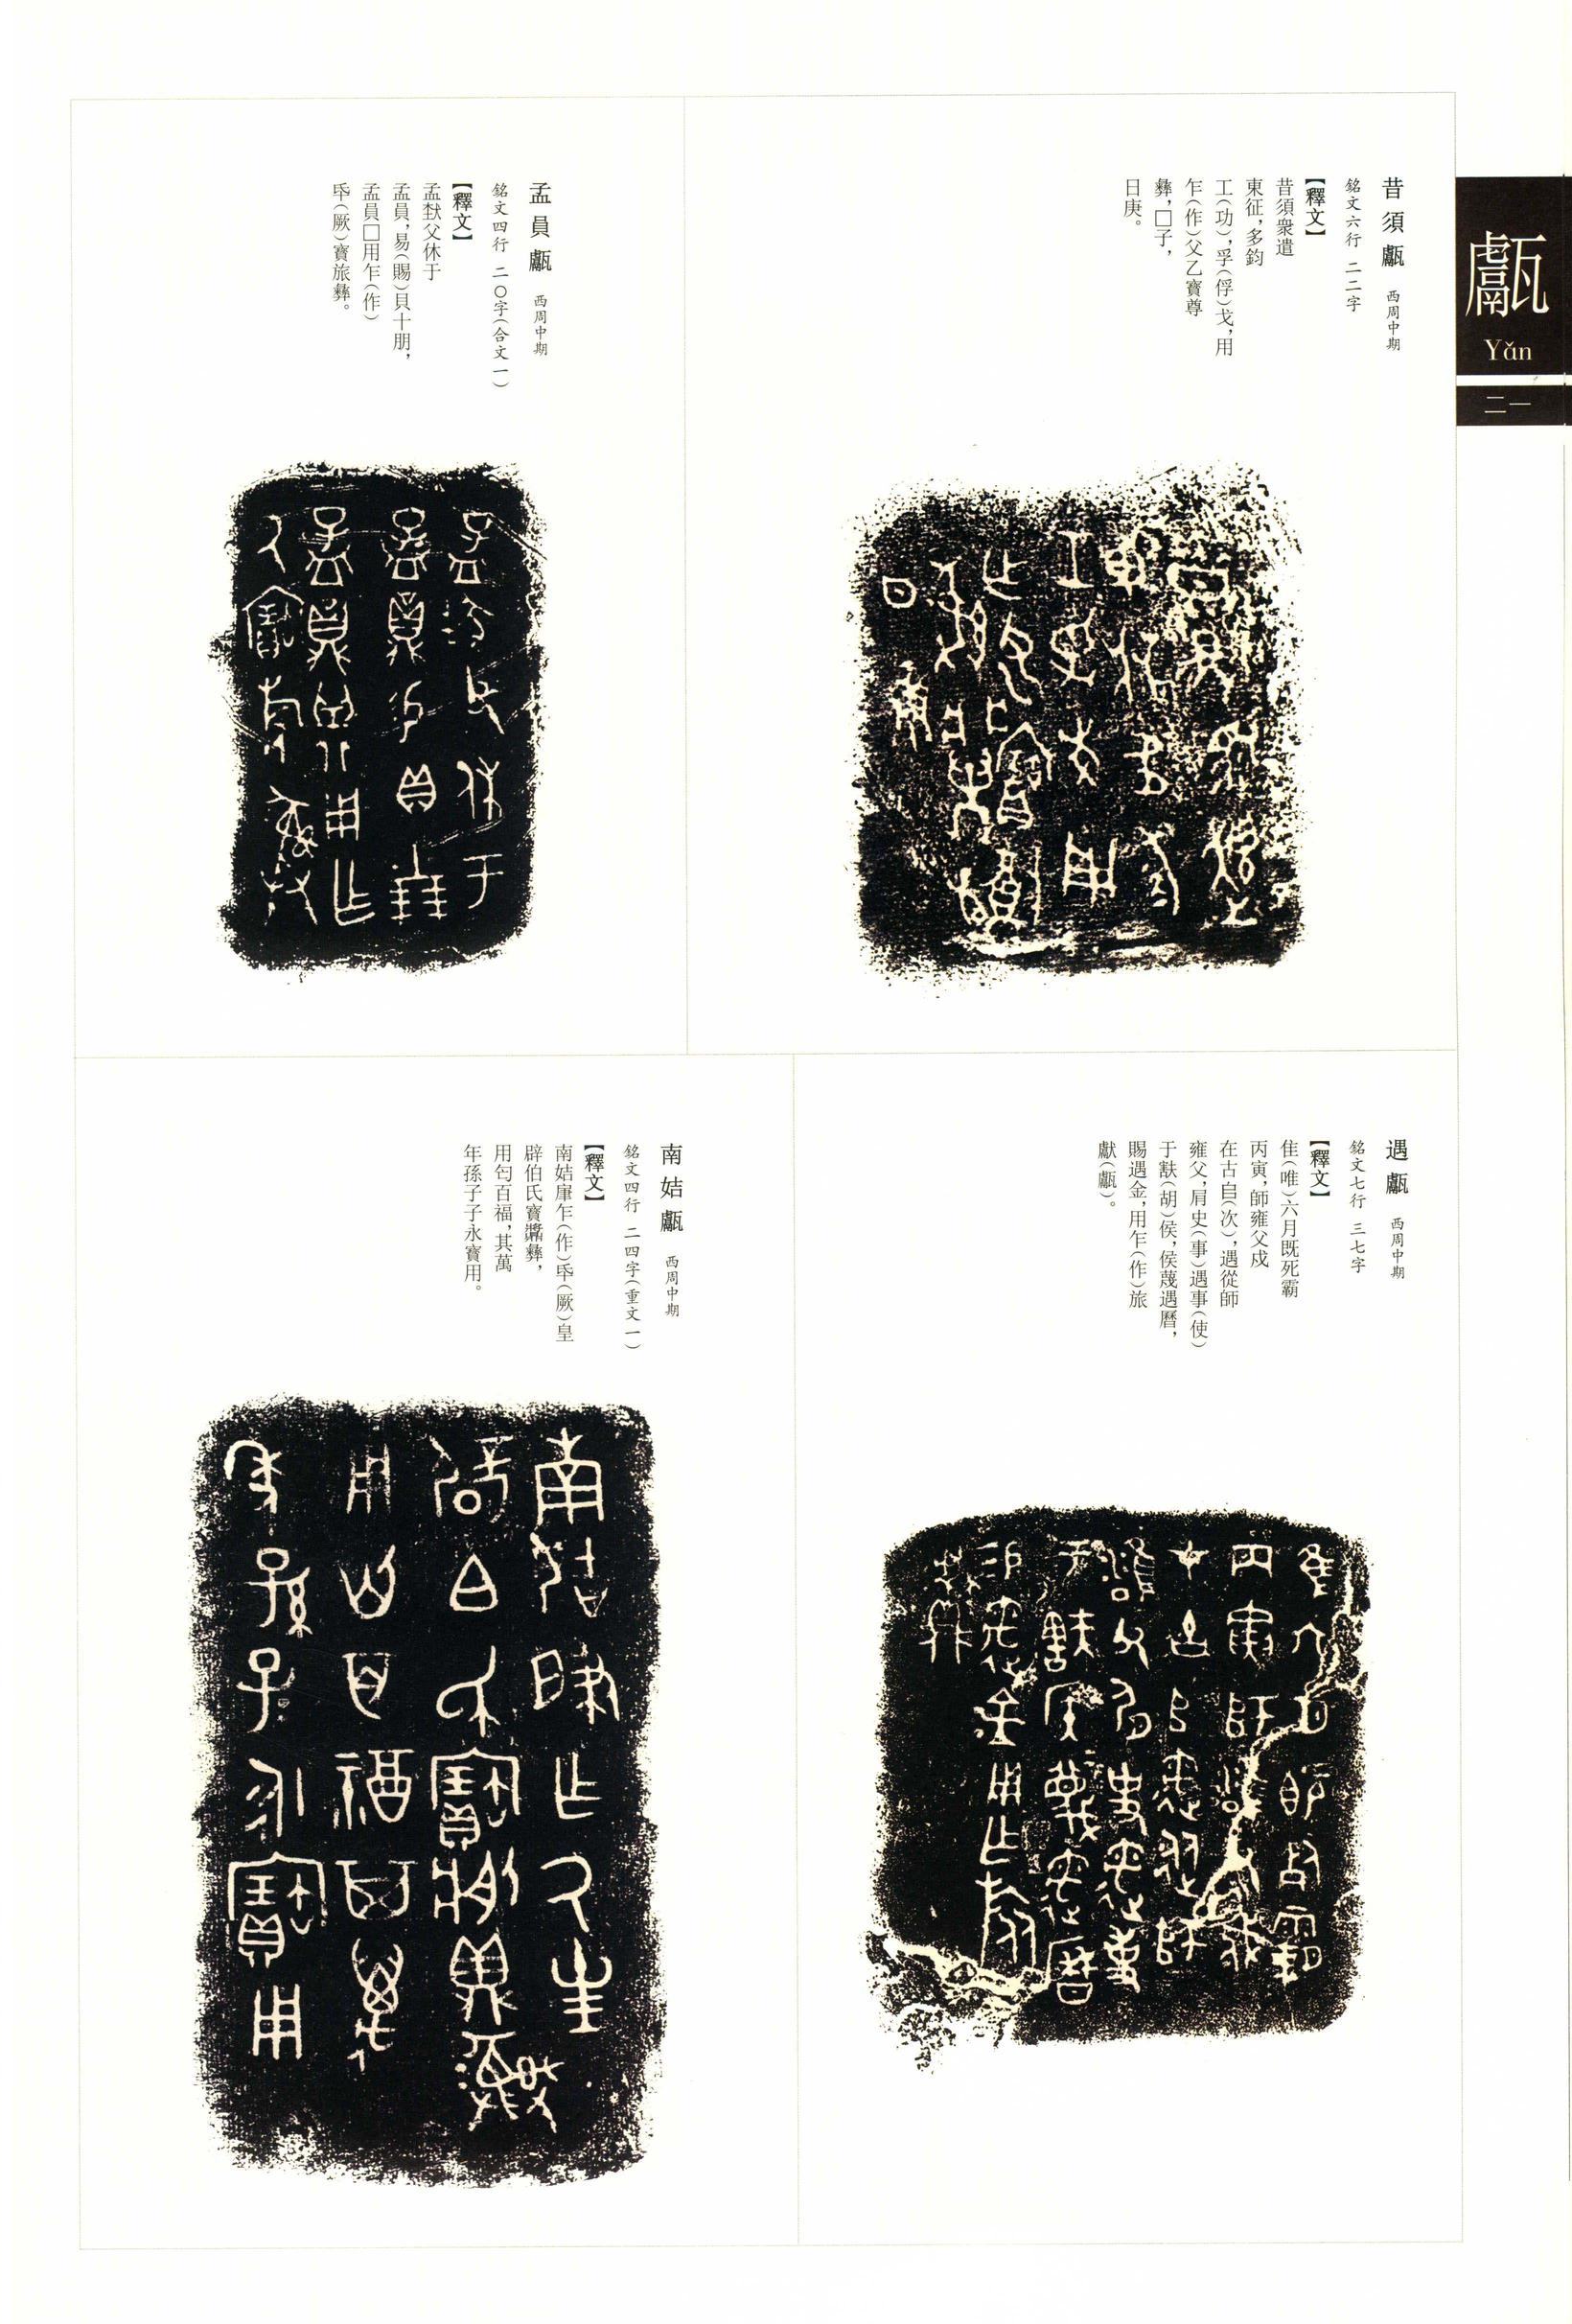 甗
Yǎn
二一
昔須甗 西周中期
銘文六行 二二字
【釋文】
昔須衆遣
東征,多鈞
工(功),孚(俘)戈,用
乍(作)父乙寶尊
彝,□子,
日庚。
孟員甗 西周中期
銘文四行 二〇字(合文一)
【釋文】
孟㺇父休于
孟員,易(賜)貝十朋,
孟員□用乍(作)
氒(厥)寶旅彝。
遇甗 西周中期
銘文七行 三七字
【釋文】
隹(唯)六月既死霸
丙寅,師雍父戍
在古𠂤(次),遇從師
雍父,肩史(事)遇事(使)
于㝬(胡)侯,侯蔑遇曆,
賜遇金,用乍(作)旅
獻(甗)。
南姞甗 西周中期
銘文四行 二四字(重文一)
【釋文】
南姞肈乍(作)氒(厥)皇
辟伯氏寶䵼彝,
用匄百福,其萬
年孫子子永寶用。